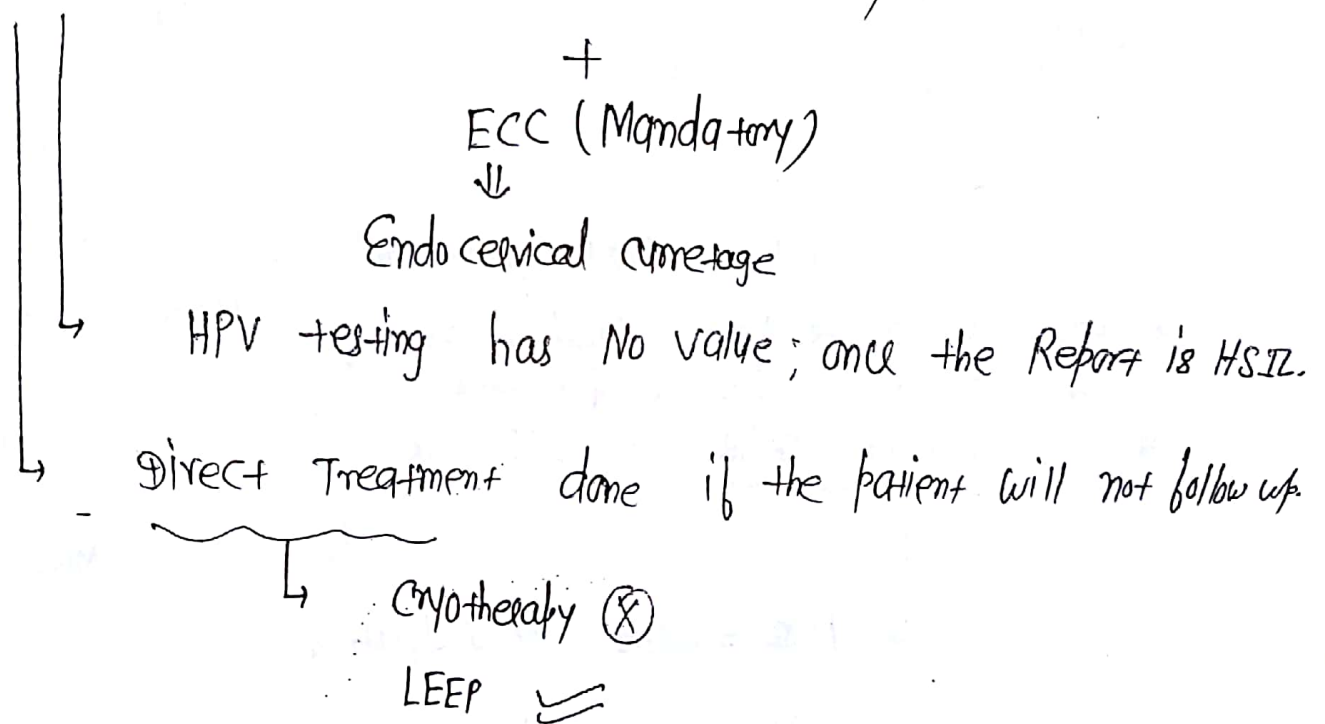 +
ECC (Mandatory)
⇓
Endocervical curretage
↳ HPV testing has No value; once the Report is HSIL.
↳ Direct Treatment done if the patient will not follow up.
↳ Cryotherapy ⓧ
LEEP